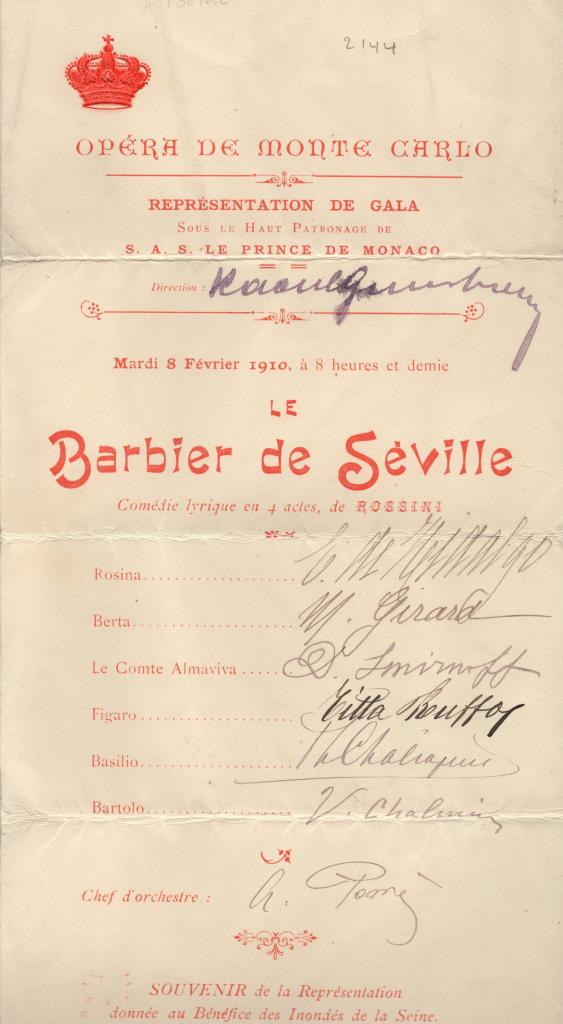 2144
OPÉRA DE MONTE CARLO
REPRÉSENTATION DE GALA
SOUS LE HAUT PATRONAGE DE
S. A. S. LE PRINCE DE MONACO
Direction : Raoul Gunsbourg
Mardi 8 Février 1910, à 8 heures et demie
LE
Barbier de Séville
Comédie lyrique en 4 actes, de ROSSINI
Rosina.................. E. de Hidalgo
Berta.................... M. Girard
Le Comte Almaviva ..... D. Smirnoff
Figaro................... Titta Ruffo
Basilio................... Chaliapine
Bartolo .................. V. Chalmin
Chef d'orchestre : A. Pomé
SOUVENIR de la Représentation
donnée au Bénéfice des Inondés de la Seine.